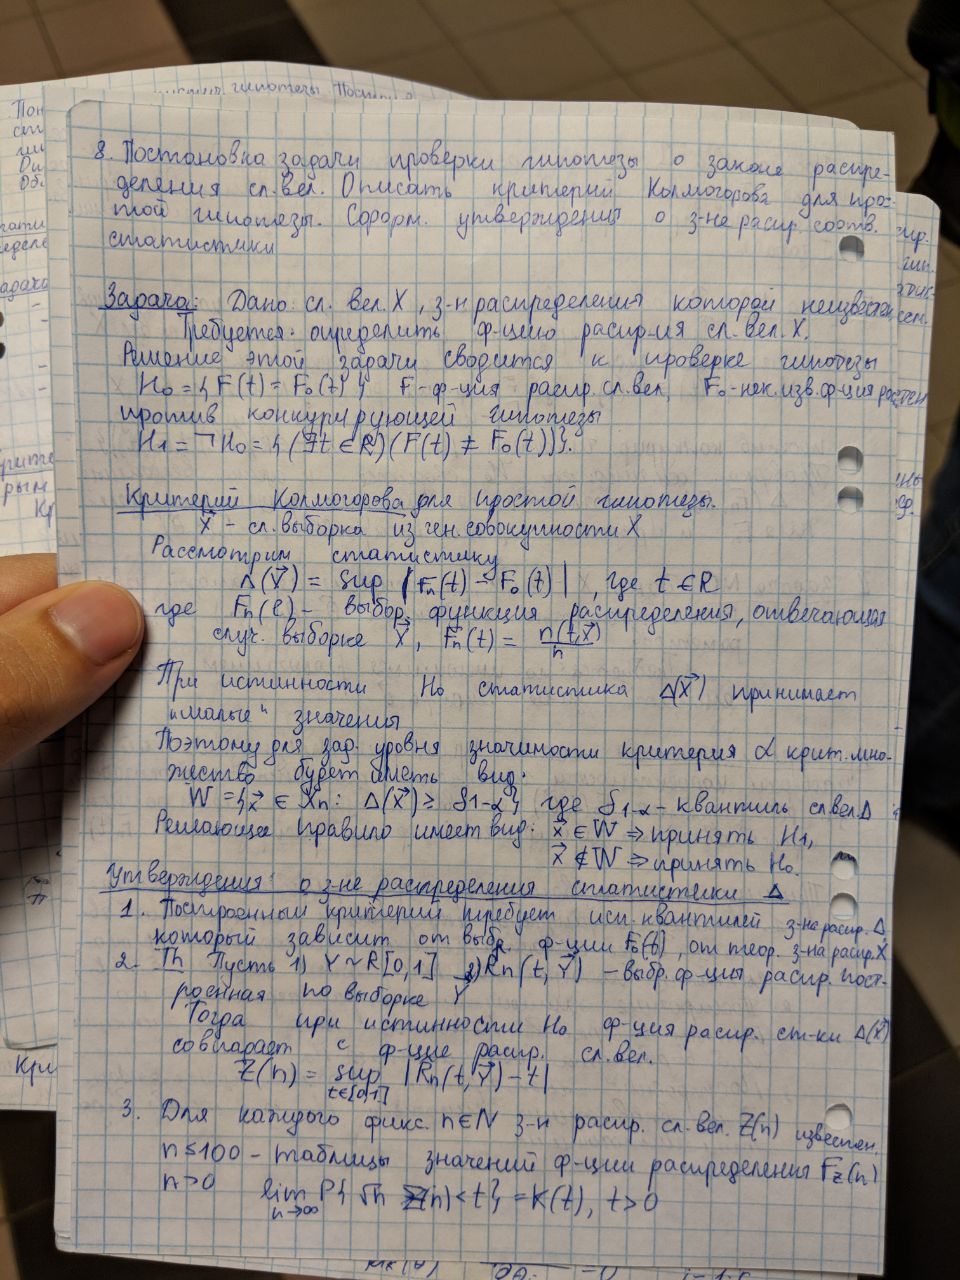 8. Постановка задачи проверки гипотезы о законе распре-
деления сл. вел. Описать критерий Колмогорова для прос-
той гипотезы. Сформ. утверждения о з-не распр. соотв.
статистики
Задача: Дано: сл. вел. X, з-н распределения которой неизвестен.
Требуется: определить ф-цию распр-ия сл. вел. X.
Решение этой задачи сводится к проверке гипотезы
H₀ = {F(t) = F₀(t)} F-ф-ция распр. сл. вел, F₀-нек. изв. ф-ция
против конкурирующей гипотезы
H₁ = ¬H₀ = {(∃t ∈ R)(F(t) ≠ F₀(t))}.
Критерий Колмогорова для простой гипотезы.
X⃗ - сл. выборка из ген. совокупности X
Рассмотрим статистику
Δ(X⃗) = sup |Fn(t) - F₀(t)|, где t ∈ R
где Fn(t) - выбор. функция распределения, отвечающая
случ. выборке X⃗, Fn(t) = n(t,X⃗)/n
При истинности H₀ статистика Δ(X⃗) принимает
"малые" значения
Поэтому для зад. уровня значимости критерия α крит. мно-
жество будет иметь вид:
W = {x⃗ ∈ Xn: Δ(X⃗) ≥ δ1-α}, где δ1-α - квантиль сл. вел. Δ
Решающее правило имеет вид: x⃗ ∈ W ⇒ принять H₁,
x⃗ ∉ W ⇒ принять H₀.
Утверждения о з-не распределения статистики Δ
1. Построенный критерий требует исп. квантилей з-на распр. Δ,
который зависит от выбр. ф-ции F₀(t), от теор. з-на распр. X
2. Th Пусть 1) Y ~ R[0,1] 2) Rn(t, Y⃗) - выбр. ф-ция распр. пост-
роенная по выборке Y⃗
Тогда при истинности H₀ ф-ция распр. ст-ки Δ(X⃗)
совпадает с ф-цие распр. сл. вел.
Z(n) = sup |Rn(t, Y⃗) - t|
t∈[0,1]
3. Для каждого фикс. n∈N з-н распр. сл. вел. Z(n) известен.
n ≤ 100 - таблицы значений ф-ции распределения FZ(n)
n > 0
lim P{√n Z(n) < t} = K(t), t > 0
n→∞